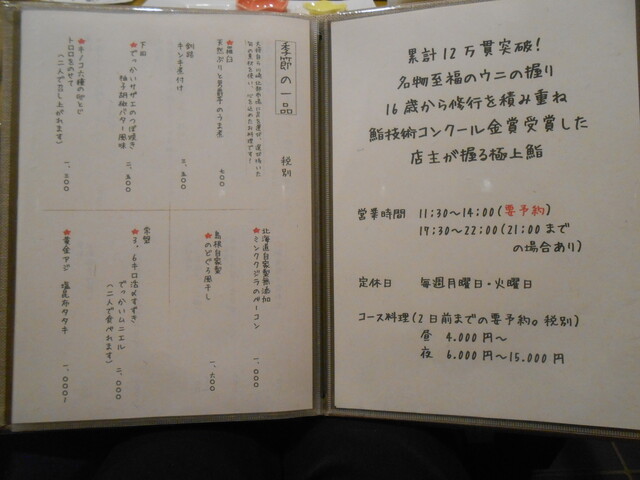 季節の一品 税別
★羅臼
天然ぶりと男爵芋のうま煮 七〇〇
釧路
キンキ煮付け 三、五〇〇
下田
★でっかいサザエのつぼ焼き
柚子胡椒バター風味 二、五〇〇
★キノコ六種の
トロロをのせて
(二人で召し上がれます) 一、三〇〇
北海道自家製無添加
★ミンククジラのベーコン 一、〇〇〇
島根自家製
★のどぐろ風干し 一、六〇〇
常盤
★3.6キロ活〆すずき
でっかいムニエル
(二人で食べれます) 二、〇〇〇
★黄金アジ 塩昆布タタキ 一、〇〇〇〜
累計12万貫突破!
名物至福のウニの握り
16歳から修行を積み重ね
鮨技術コンクール金賞受賞した
店主が握る極上鮨
営業時間 11:30〜14:00(要予約)
17:30〜22:00(21:00まで
の場合あり)
定休日 毎週月曜日・火曜日
コース料理(2日前までの要予約。税別)
昼 4.000円〜
夜 6.000円〜15.000円